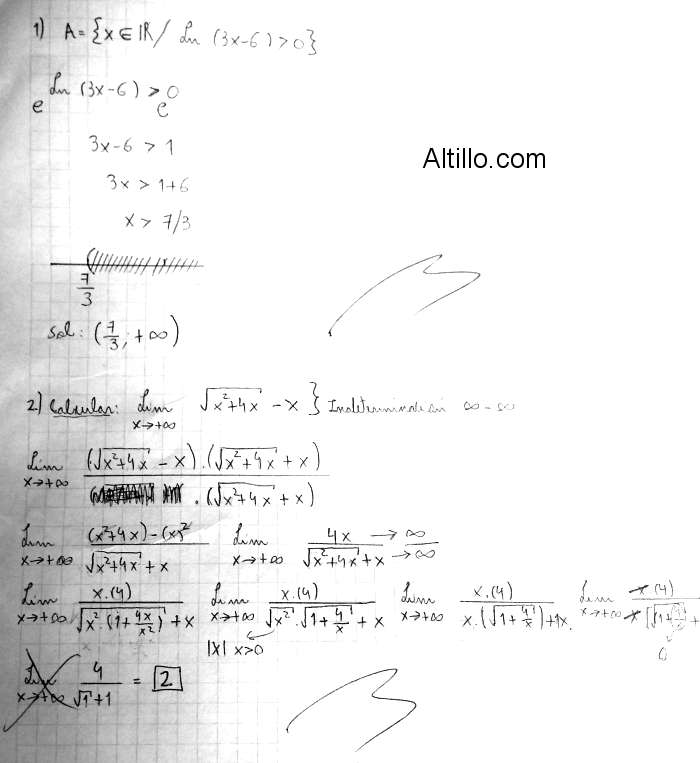 1) A = {x ∈ ℝ / Ln (3x-6) > 0}
e^Ln (3x-6) > e^0
Altillo.com
3x-6 > 1
3x > 1+6
x > 7/3
7/3
Sol: (7/3; +∞)
2) Calcular: Lim x→+∞ √(x²+4x) - x } Indeterminación ∞-∞
Lim x→+∞ (√(x²+4x) - x).(√(x²+4x) + x) / .(√(x²+4x) + x)
Lim x→+∞ (x²+4x)-(x)² / √(x²+4x) + x Lim x→+∞ 4x → ∞ / √(x²+4x) + x → ∞
Lim x→+∞ x.(4) / √(x².(1+4x/x²)) + x Lim x→+∞ x.(4) / √x².√(1+4/x) + x Lim x→+∞ x.(4) / x.(√(1+4/x))+1x. Lim x→+∞ x (4) / x [√(1+4/x) +
|x| x>0
0
Lim x→+∞ 4 / √1+1 = 2